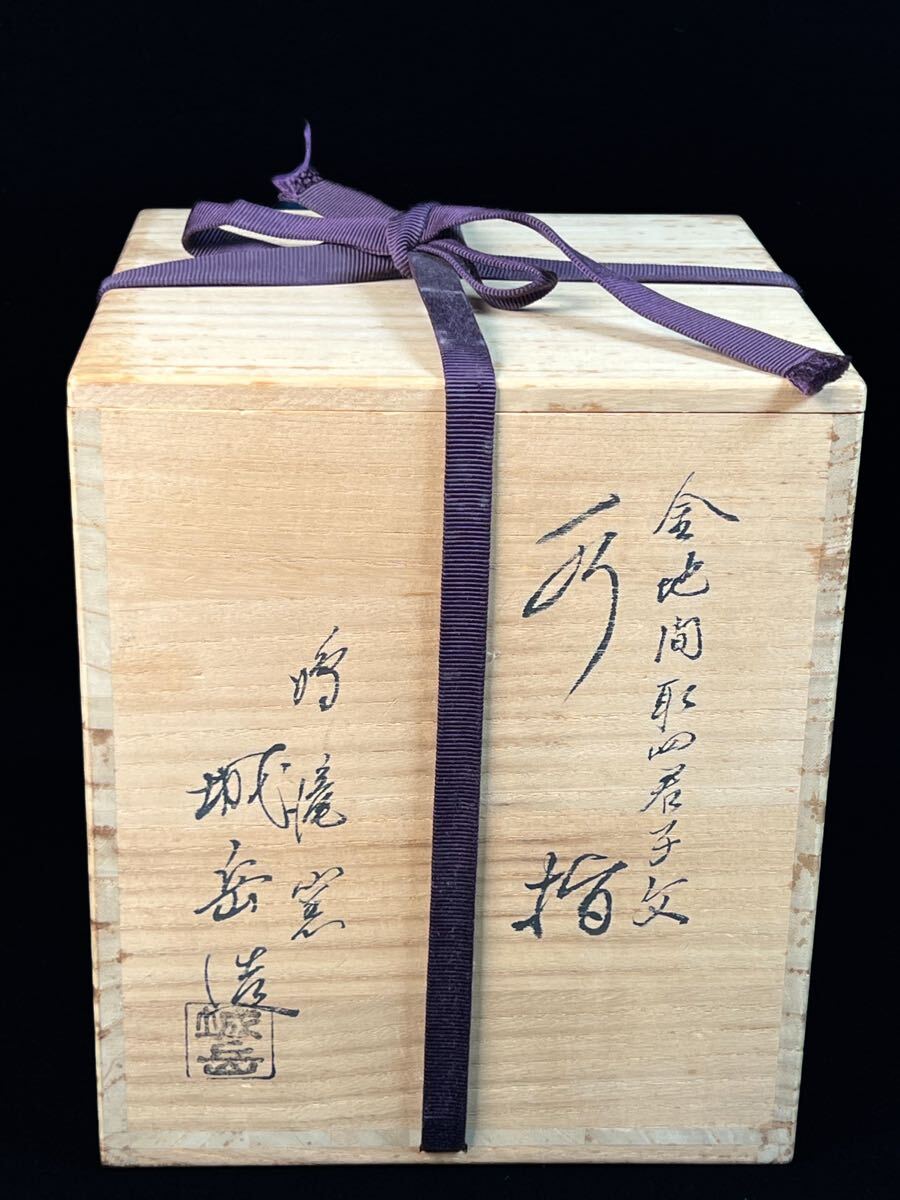 金地間取四君子文
水指
鳴滝窯
城岳造
城岳